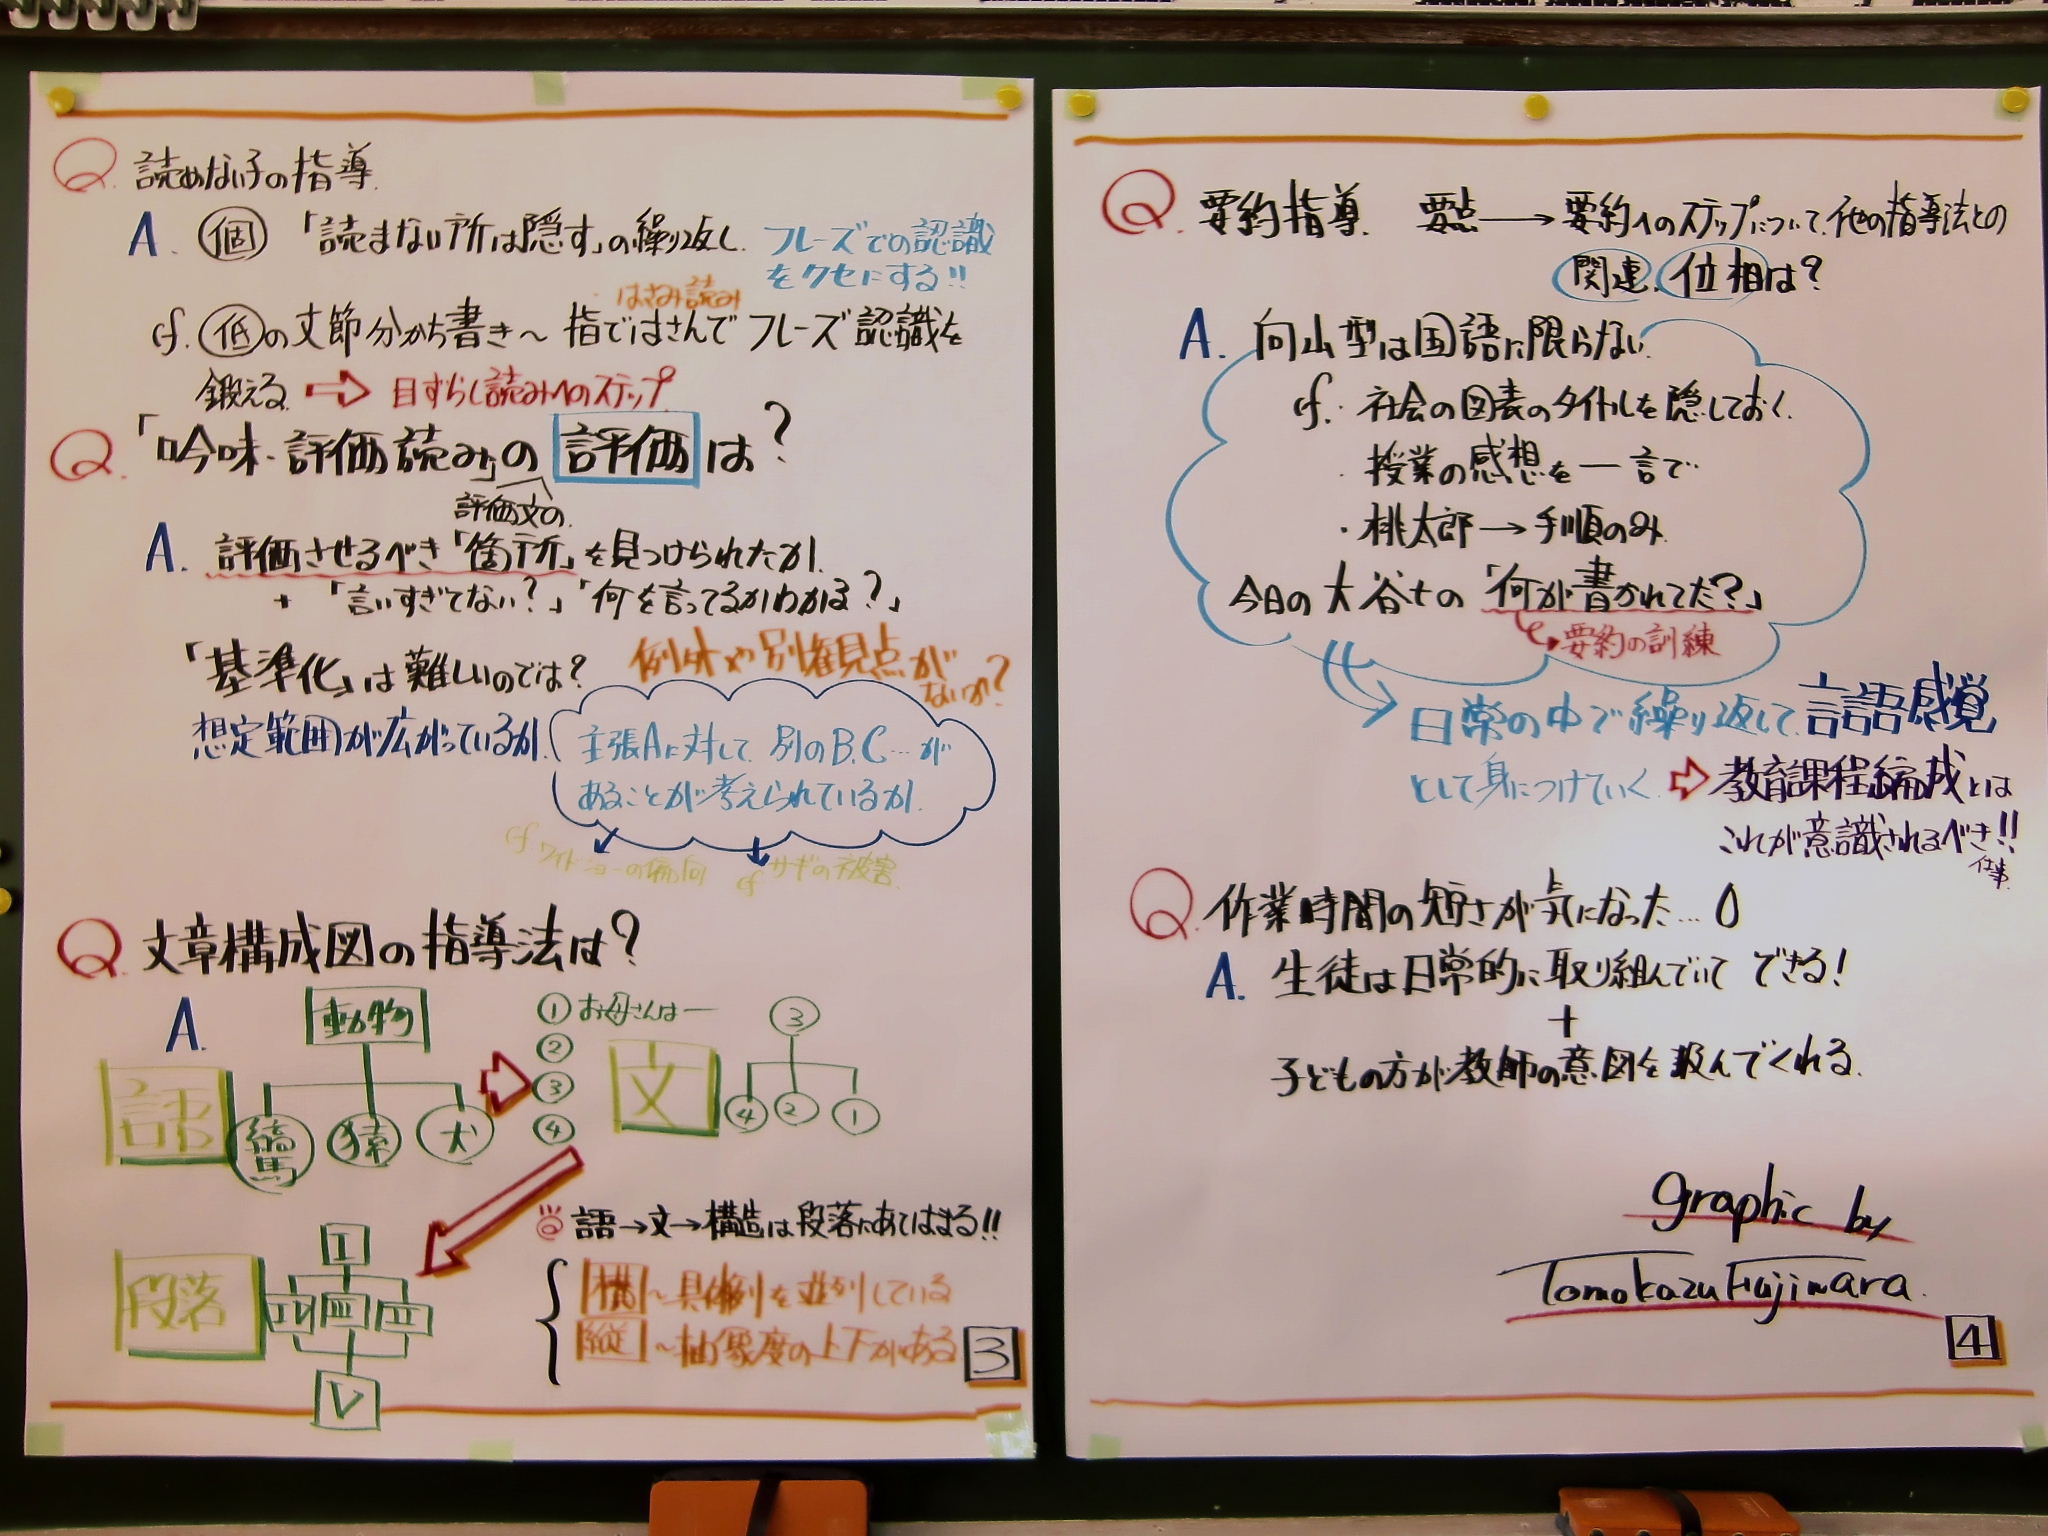 Q. 読めない子の指導
A. 個 「読まない所は隠す」の繰り返し. フレーズでの認識
をクセにする!!
はさみ読み
cf. 低の文節分かち書き〜 指ではさんで フレーズ認識を
鍛える ⇨ 目ずらし読みへのステップ
Q. 「吟味・評価読み」の 評価 は?
評価文の
A. 評価させるべき「箇所」を見つけられたか.
+ 「言いすぎてない?」「何を言ってるかわかる?」
「基準化」は難しいのでは? 例外や別観点が
ないか?
想定範囲が広がっているか.
主張Aに対して. 別のB.C…が
あることが考えられているか.
cf ワイドショーの偏向 cf サギの被害
Q. 文章構成図の指導法は?
A.
語 動物 縞馬 猿 犬
① お母さんは―
②
③
④
文 ③ ④ ② ①
段落 Ⅰ Ⅱ Ⅲ Ⅳ Ⅴ
語→文→構造は段落にあてはまる!!
横〜具体例を並列している
縦〜抽象度の上下がある
3
Q. 要約指導. 要点→要約へのステップについて. 他の指導法との
関連. 位相は?
A. 向山型は国語に限らない.
cf. ・社会の図表のタイトルを隠しておく.
・授業の感想を一言で
・桃太郎→手順のみ.
今日の大谷tの「何が書かれてた?」
要約の訓練
日常の中で繰り返して. 言語感覚
として身につけていく. ⇨ 教育課程編成とは
これが意識されるべき!!
仕事.
Q. 作業時間の短さが気になった…
A. 生徒は日常的に取り組んでいて できる!
+
子どもの方が教師の意図を汲んでくれる.
graphic by
Tomokazu Fujiwara.
4